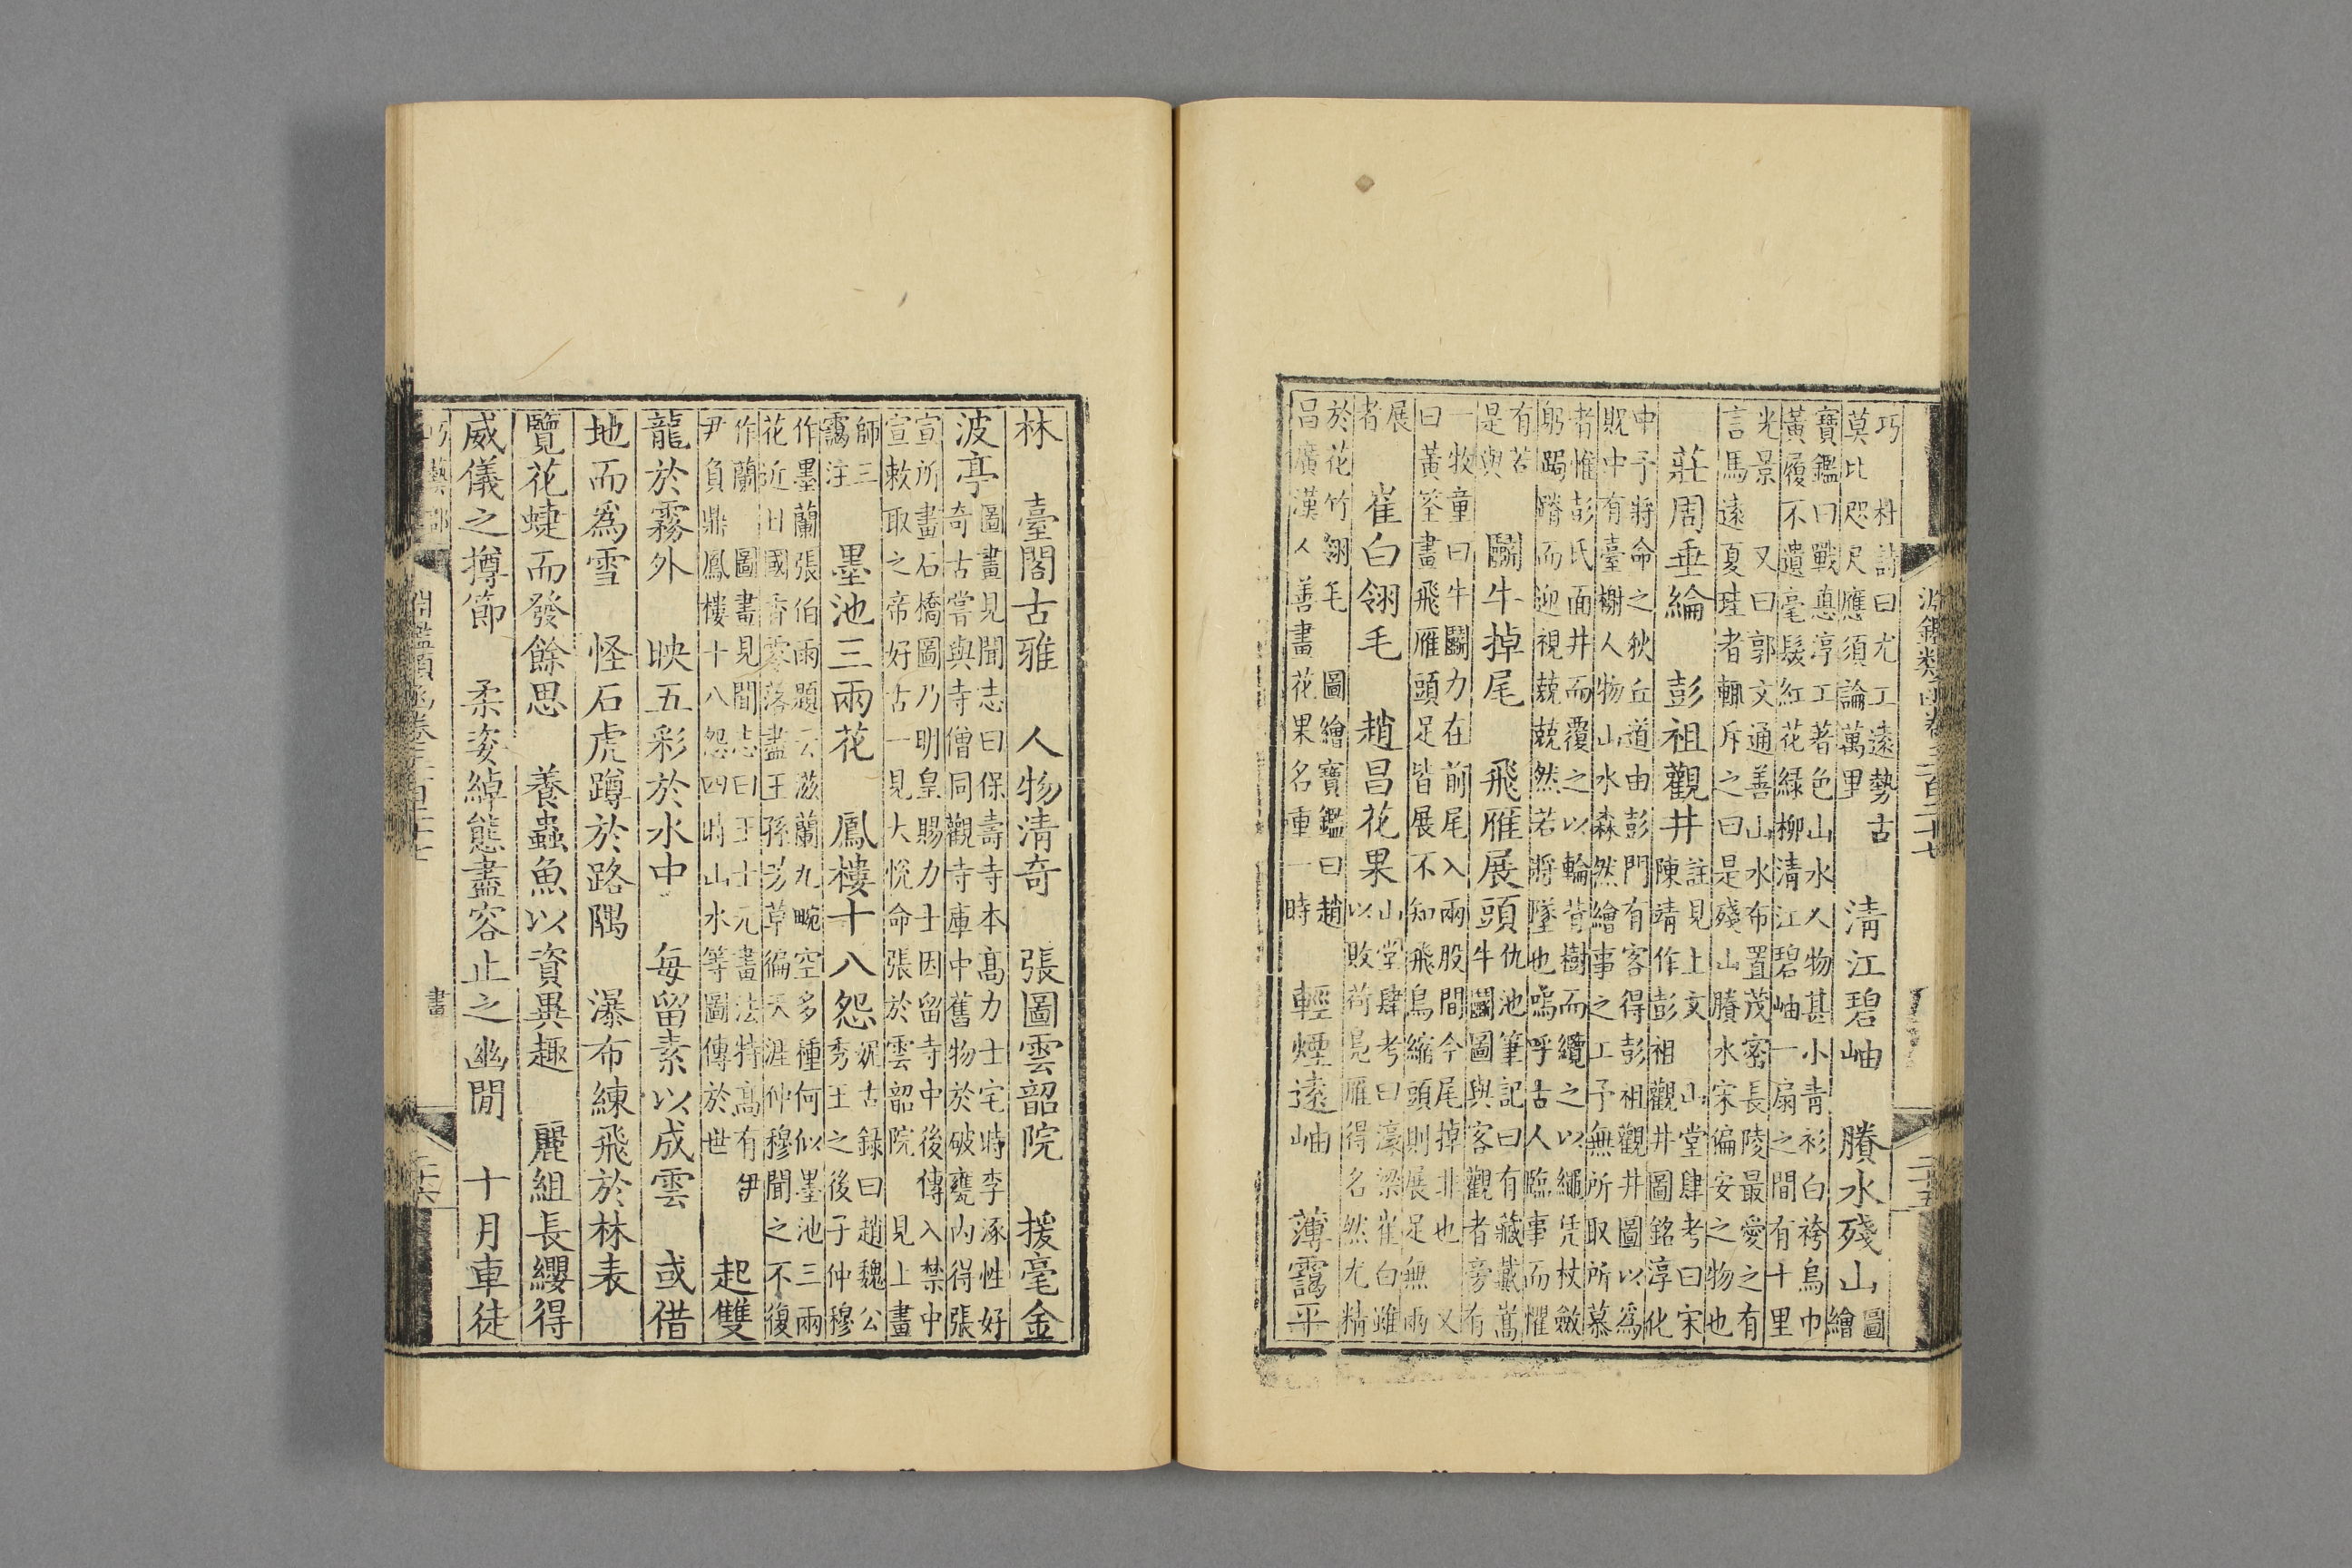 巧　杜詩曰尤工遠勢古
莫比咫尺應須論萬里　清江碧岫　賸水殘山　圖繪
寶鑑曰戰惪淳工著色山水人物甚小青衫白袴烏巾
黃履不遺毫髮紅花綠柳清江碧岫一扇之間有十里
光景　又曰郭文通善山水布置茂密長陵最愛之有
言馬遠夏珪者輒斥之曰是殘山賸水宋偏安之物也
莊周垂綸　彭祖觀井　註見上文　山堂肆考曰宋
陳靖作彭祖觀井圖銘淳化
中予將命之狄丘道由彭門有客得彭祖觀井圖以為
貺中有臺榭人物山水森然繪事之工予無所取所慕
者惟彭氏面井而覆之以輪背樹而纜之以繩凭杖斂
躬跼蹐而迎視兢兢然若將墜也嗚呼古人臨事而懼
有若
是與　鬭牛掉尾　飛雁展頭　仇池筆記曰有藏戴嵩
牛鬭圖與客觀者旁有
一牧童曰牛鬭力在前尾入兩股間今尾掉非也　又
曰黃筌畫飛雁頭足皆展不知飛鳥縮頭則展足無兩
展
者　崔白翎毛　趙昌花果　山堂肆考曰濠梁崔白雖
以敗荷鳧雁得名然尤精
於花竹翎毛　圖繪寶鑑曰趙
昌廣漢人善畫花果名重一時　輕煙遠岫　薄靄平
淵鑑類函卷三百二十七
二十五
林　臺閣古雅　人物清奇　張圖雲韶院　援毫金
波亭　圖畫見聞志曰保壽寺本高力士宅時李涿性好
奇古嘗與寺僧同觀寺庫中舊物於破甕內得張
宣所畫石橋圖乃明皇賜力士因留寺中後傳入禁中
宣敕取之帝好古一見大悅命張於雲韶院　見上畫
師三
靄注　墨池三兩花　鳳樓十八怨　妮古錄曰趙魏公
秀王之後子仲穆
作墨蘭張伯雨題云滋蘭九畹空多種何似墨池三兩
花近日國香零落盡王孫芳草徧天涯仲穆聞之不復
作蘭　圖畫見聞志曰王士元畫法特高有伊
尹負鼎鳳樓十八怨四時山水等圖傳於世　起雙
龍於霧外　映五彩於水中　每留素以成雲　或借
地而為雪　怪石虎蹲於路隅　瀑布練飛於林表
覽花蜨而發餘思　養蟲魚以資異趣　麗組長纓得
威儀之撙節　柔姿綽態盡容止之幽閒　十月車徒
巧藝部
淵鑑類函卷三百二十七
畫
二十六